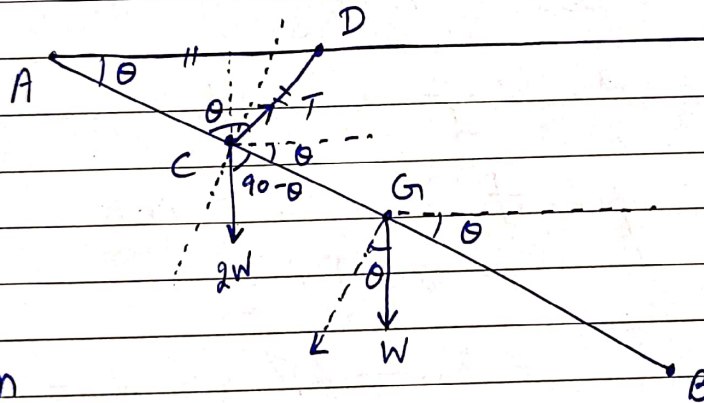 D
A θ
θ T
C θ
90-θ
G
θ
2W θ
W
B
n